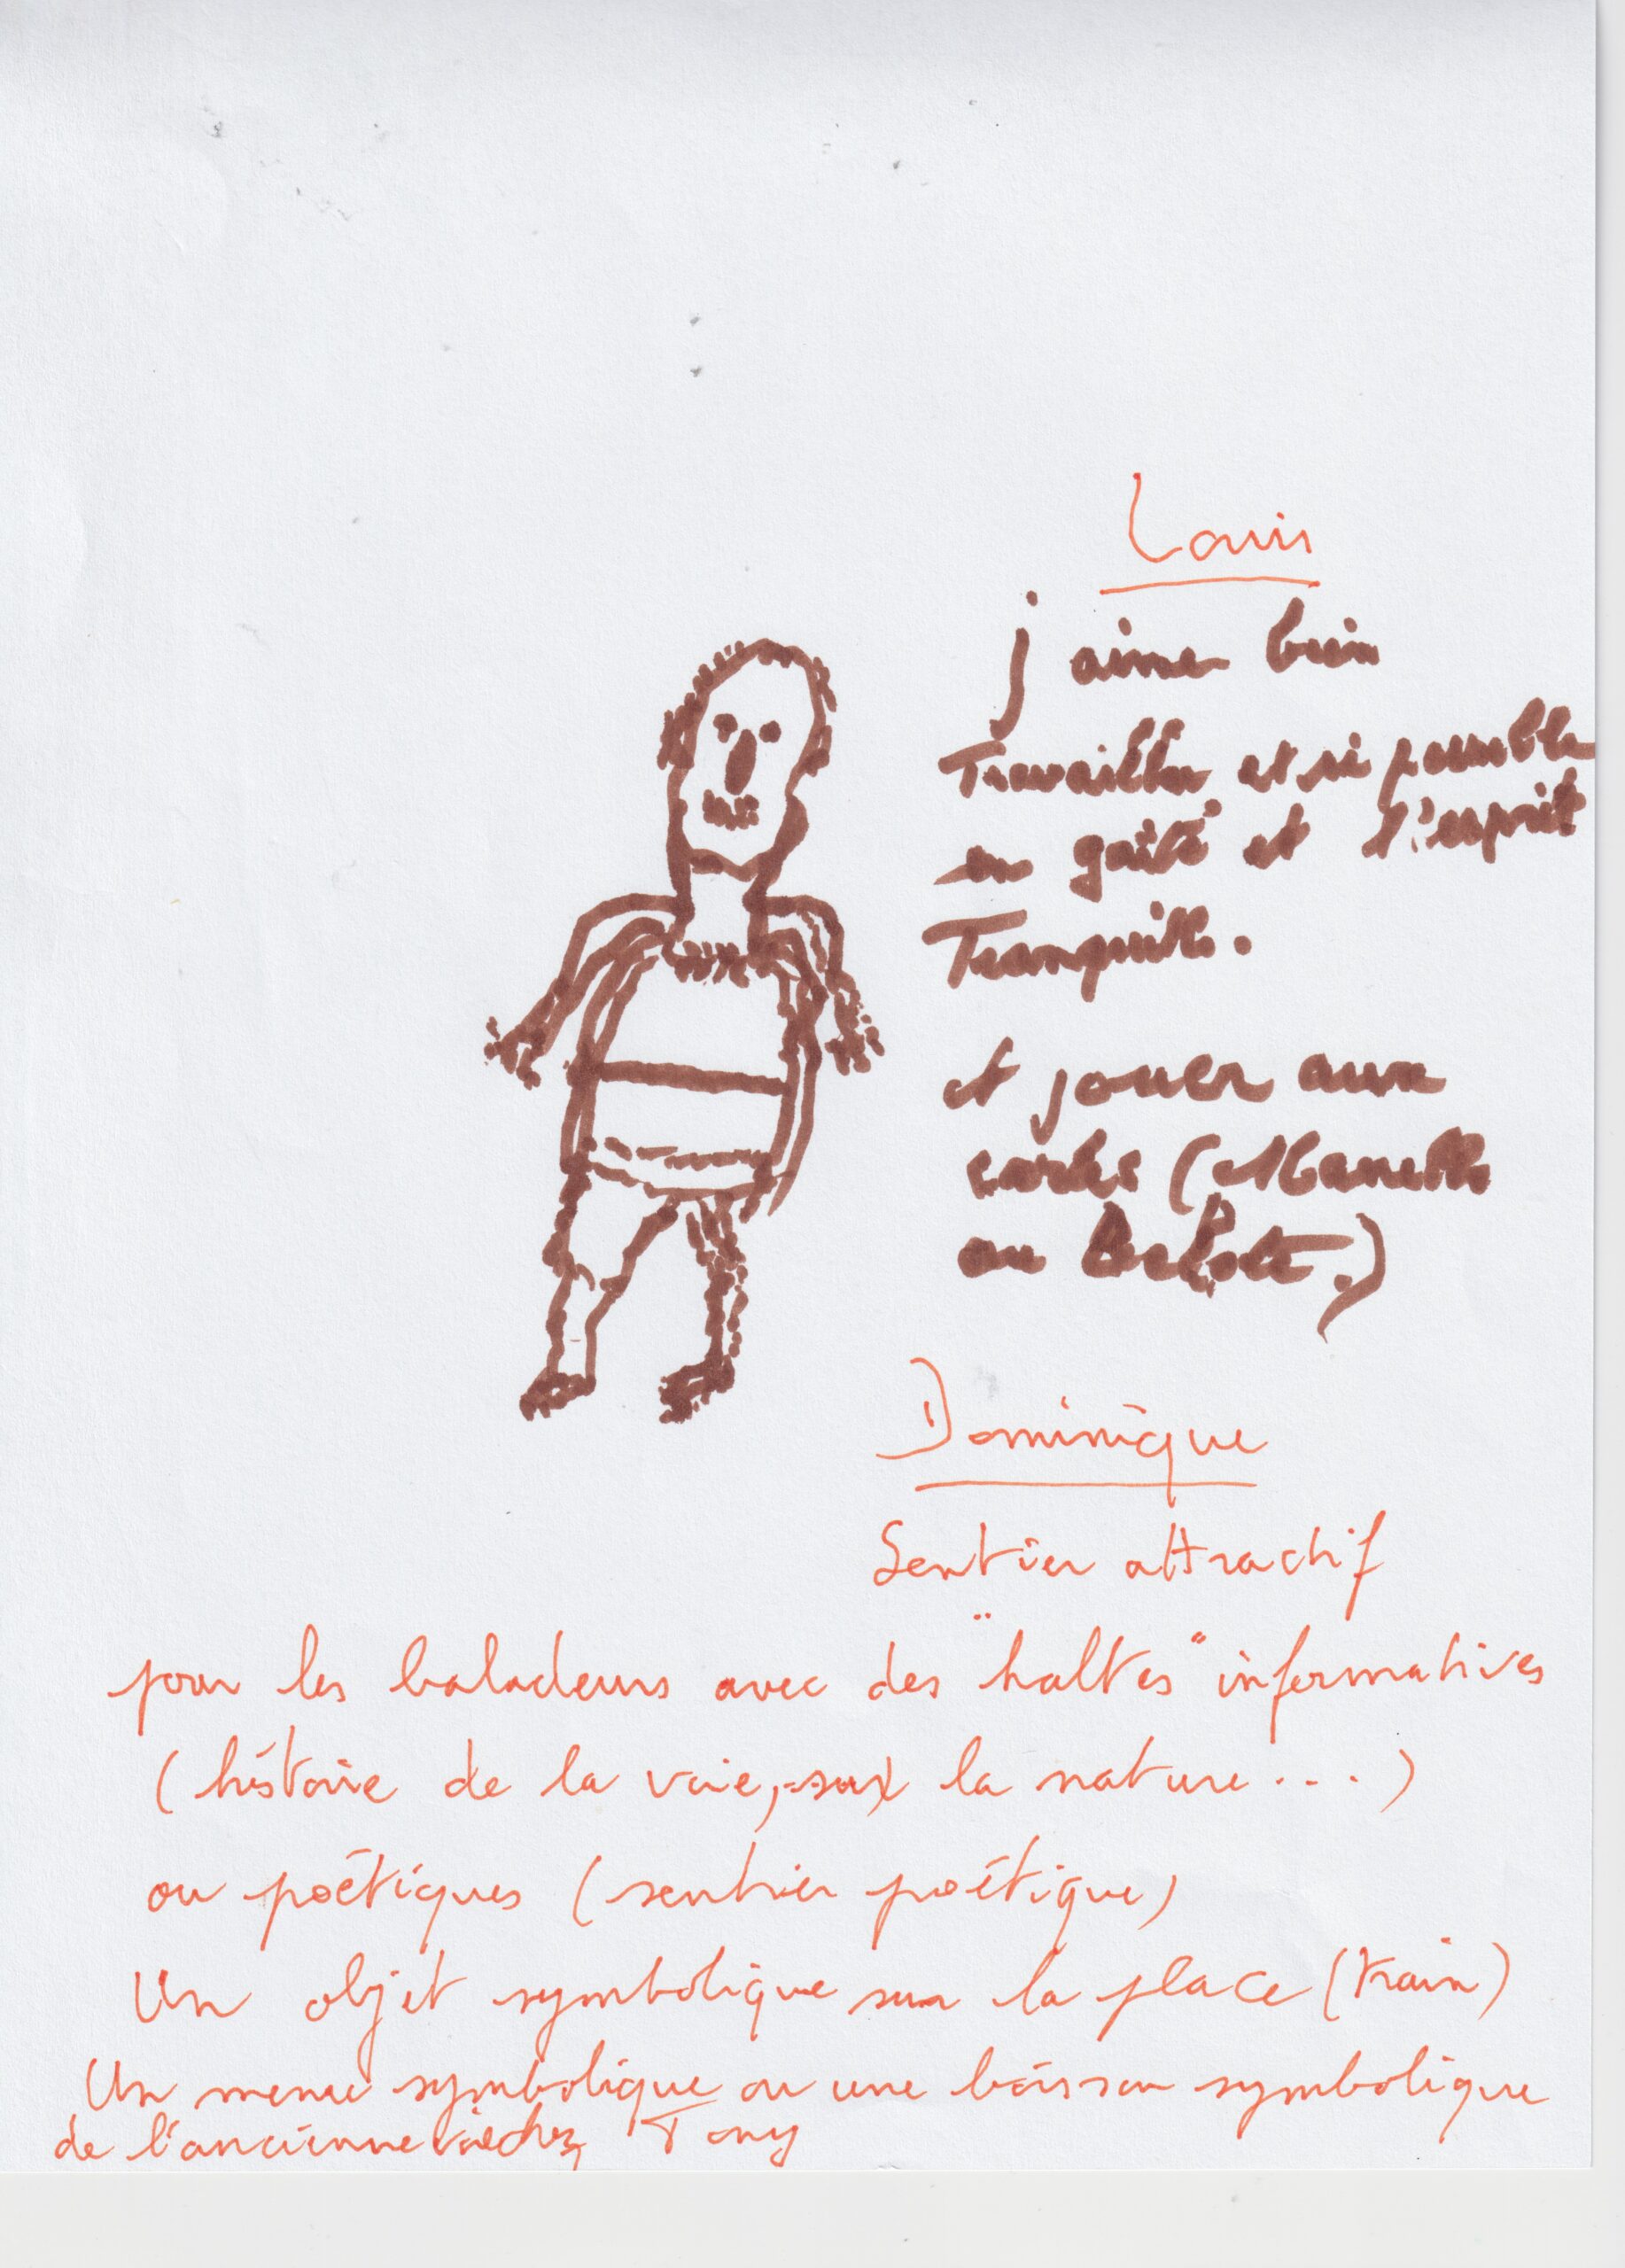 Louis
j aime bien
Travailler et si possible
en gaité et l'esprit
Tranquille.
et jouer aux
cartes (Manille
ou Belote.)
Dominique
Sentier attractif
pour les baladeurs avec des "haltes" informatives
(histoire de la voie, sur la nature...)
ou poétiques (sentier poétique)
Un objet symbolique sur la place (train)
Un menu symbolique ou une boisson symbolique
de l'ancienne voie chez Tony